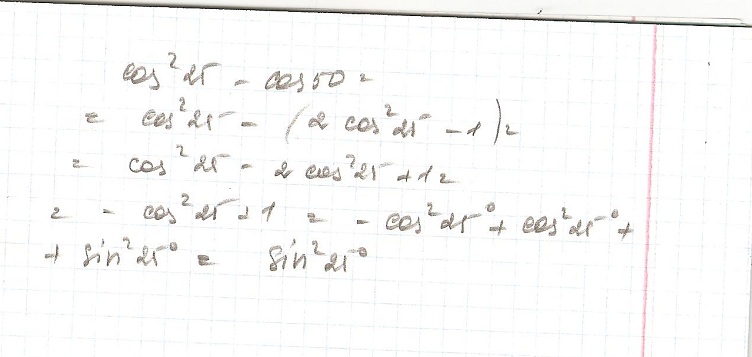 cos²25 - cos50 =
= cos²25 - (2 cos²25 - 1) =
= cos²25 - 2 cos²25 + 1 =
= - cos²25 + 1 = - cos²25° + cos²25° +
+ sin²25° = sin²25°